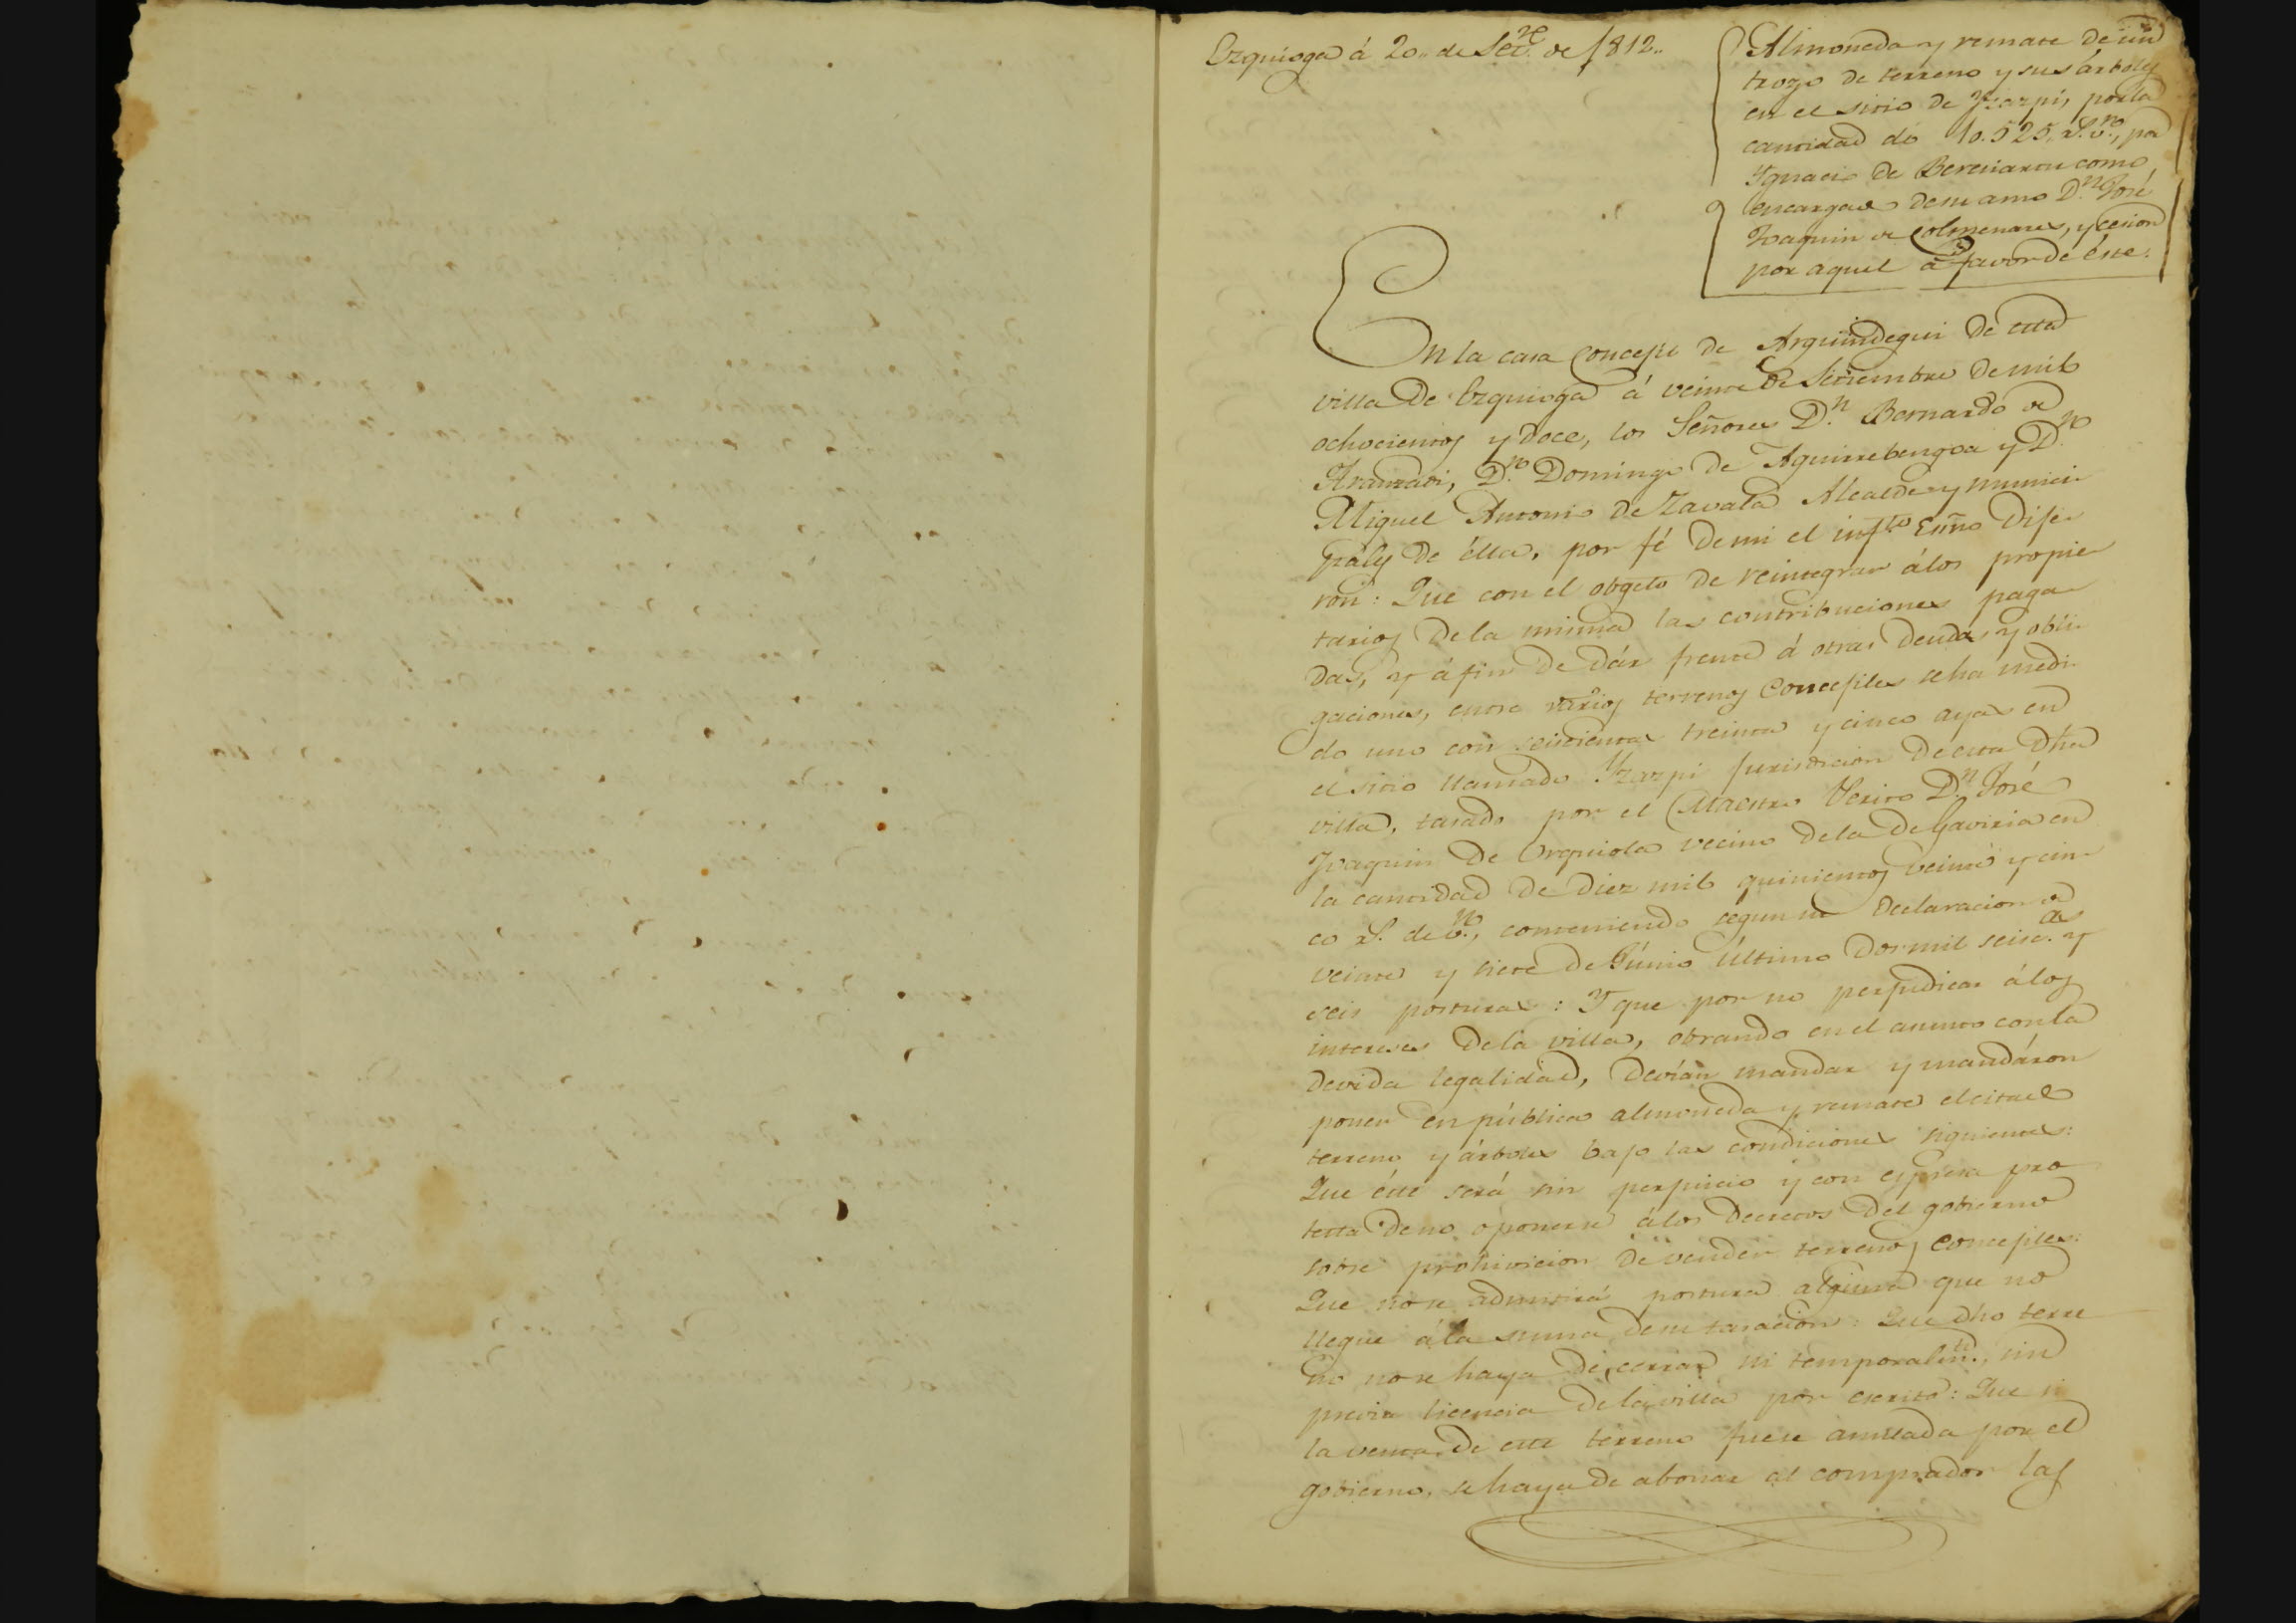 Ezquioga á 20,, de Set.re de 1812,,
Almoneda y remate de un
trozo de terreno y sus árboles
en el sitio de Yzazpi, por la
cantidad de 10.525,, rs. v.n, por
Ygnacio de Bereciartu como
encargado de su amo D.n José
Joaquin de Colmenares, y cesion
por aquel á favor de éste.
En la casa Concejil de Arguindegui de esta
villa de Ezquioga á veinte de Setiembre de mil
ochocientos y doce, los Señores D.n Bernardo de
Aranzadi, D.n Domingo de Aguirrebengoa y D.n
Miguel Antonio de Zavala Alcalde y Munici-
pales de élla, por fé de mi el inf.to Esno Dije-
ron: Que con el obgeto de reintegrar á los propie-
tarios de la misma las contribuciones paga-
das, y á fin de dár frente á otras deudas y obli-
gaciones, entre varios terrenos Concejiles se ha medi-
do uno con seiscientas treinta y cinco ayas en
el sitio llamado Yzazpi jurisdicion de esta dha
villa, tasado por el Maestro Perito D.n José
Joaquin de Orquiola vecino de la de Gaviria en
la cantidad de diez mil quinientos veinte y cin-
co rs. de v.n, conteniendo segun su declaracion de
veinte y siete de Júnio último dos mil seisc.as y
seis posturas: Y que por no perjudicar á los
intereses de la villa, obrando en el asunto con la
devida legalidad, devían mandar y mandáron
poner en pública almoneda y remate el citado
terreno y árboles bajo las condiciones siguientes:
Que éste será sin perjuicio y con expresa pro-
testa de no oponerse á los Decretos del gobierno
sobre prohivicion de vender terrenos Concejiles:
Que no se admitirá postura alguna que no
llegue á la suma de su tasacion: Que dho terre-
no no se haya de cerrar ni temporalm.te, sin
previa licencia de la villa por escrito: Que si
la venta de este terreno fuese anulada por el
gobierno, se haya de abonar al comprador las